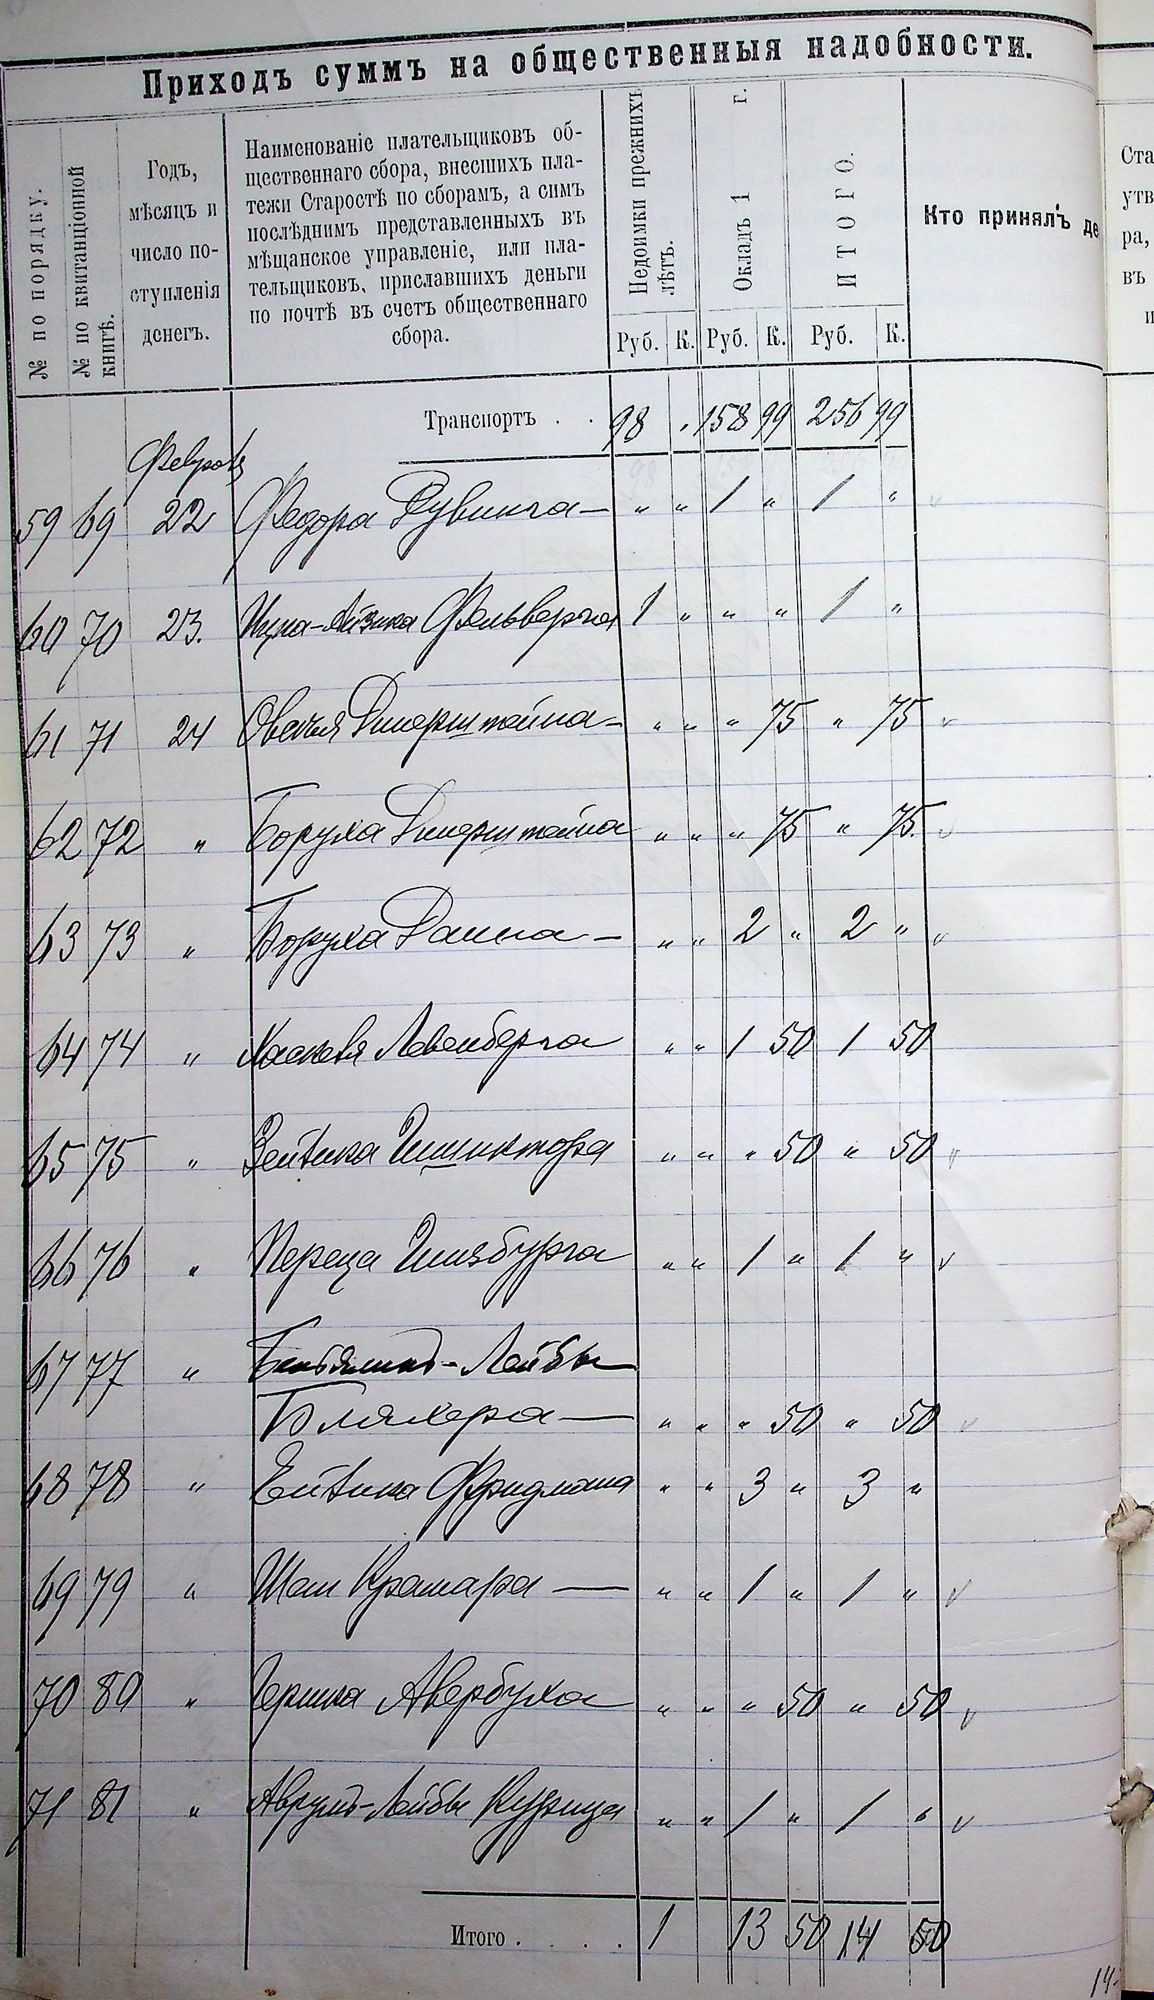 Приходъ суммъ на общественныя надобности.
№ по порядку.
№ по квитанціонной книгѣ.
Годъ,
мѣсяцъ и
число по-
ступленія
денегъ.
Наименованіе плательщиковъ об-
щественнаго сбора, внесшихъ пла-
тежи Старостѣ по сборамъ, а симъ
послѣднимъ представленныхъ въ
мѣщанское управленіе, или пла-
тельщиковъ, приславшихъ деньги
по почтѣ въ счетъ общественнаго
сбора.
Недоимки прежнихъ лѣтъ.
Окладъ 1 г.
ИТОГО.
Кто принялъ де
Руб. К. Руб. К. Руб. К.
Транспортъ . . 98 . 158 99 256 99
Февраля
59 69 22 Федора Рувинга — " " 1 " 1 "
60 70 23. Ицка-Айзика Фельберга 1 " " " 1 "
61 71 24 Овадья — " " " 75 " 75
62 72 " Боруха " " " 75 " 75.
63 73 " Боруха — " " 2 " 2 "
64 74 " Хаскеля Левенберга " " 1 50 1 50
65 75 " Зейлика " " " 50 " 50
66 76 " Переца Гинзбурга " " 1 " 1 "
67 77 " Беньяминъ-Лейбы
Бляхера — " " " 50 " 50
68 78 " Фридмана " " 3 " 3 "
69 79 " Крамара — " " 1 " 1 "
70 80 " Гершка Авербуха " " " 50 " 50
71 81 " Аврумъ-Лейбы " " 1 " 1 "
Итого . . . . 1 13 50 14 50
14
Ста
утв
ра,
въ